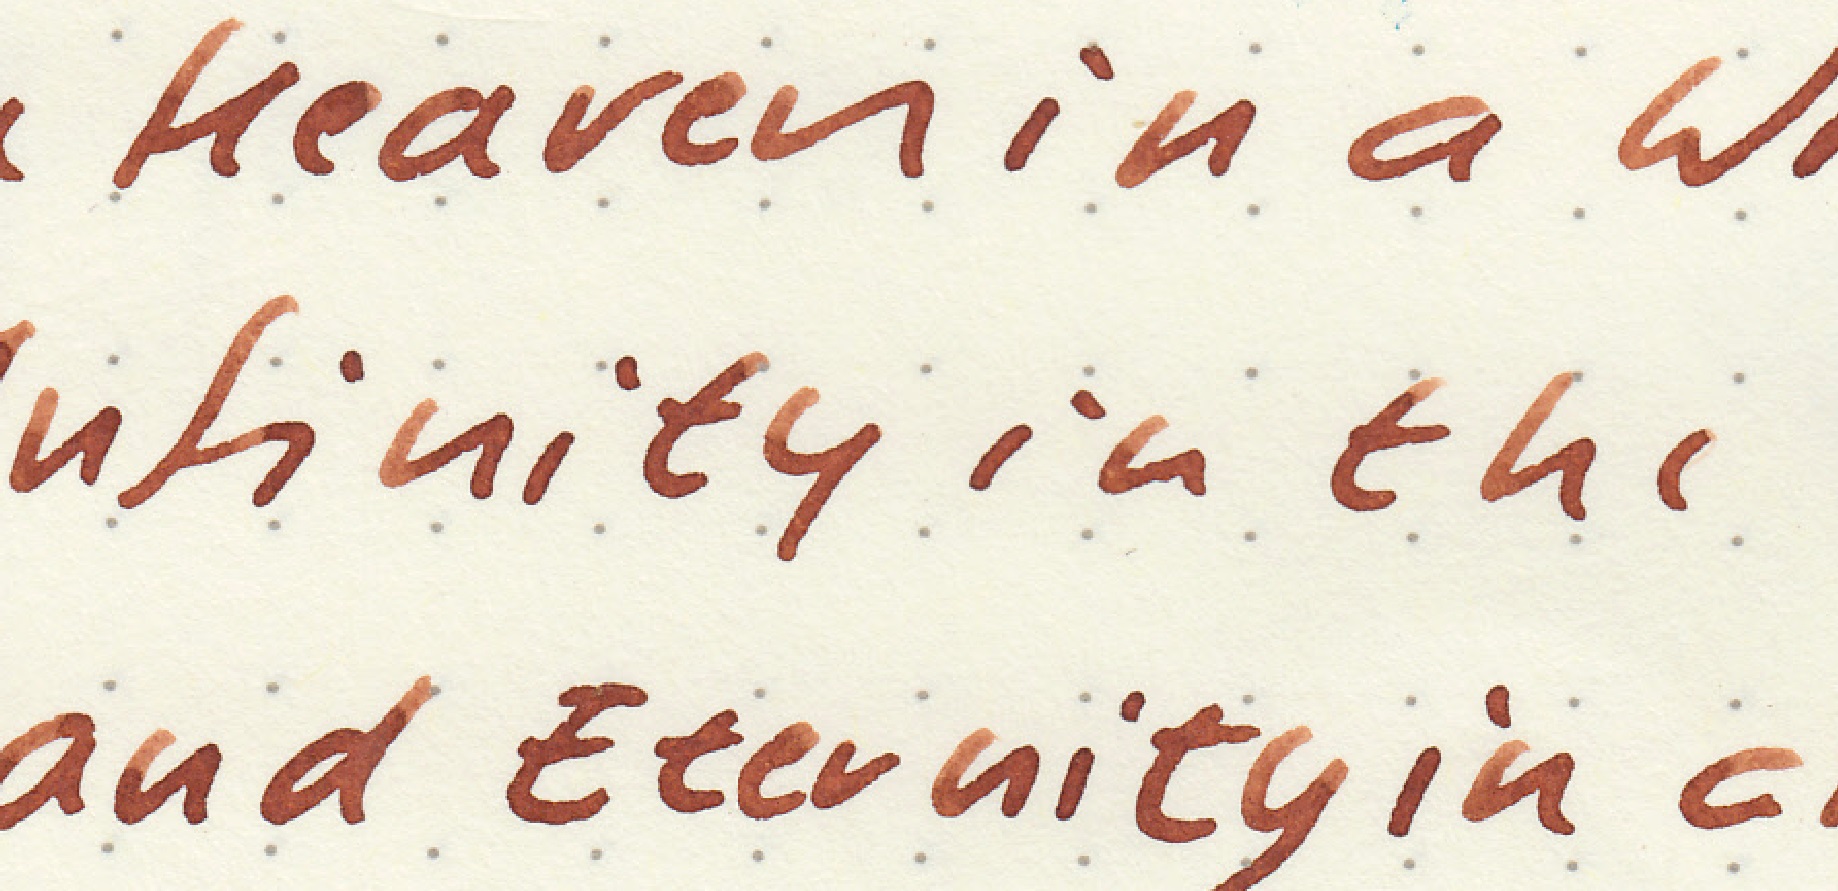 Heaven in a
Infinity in the
and Eternity in